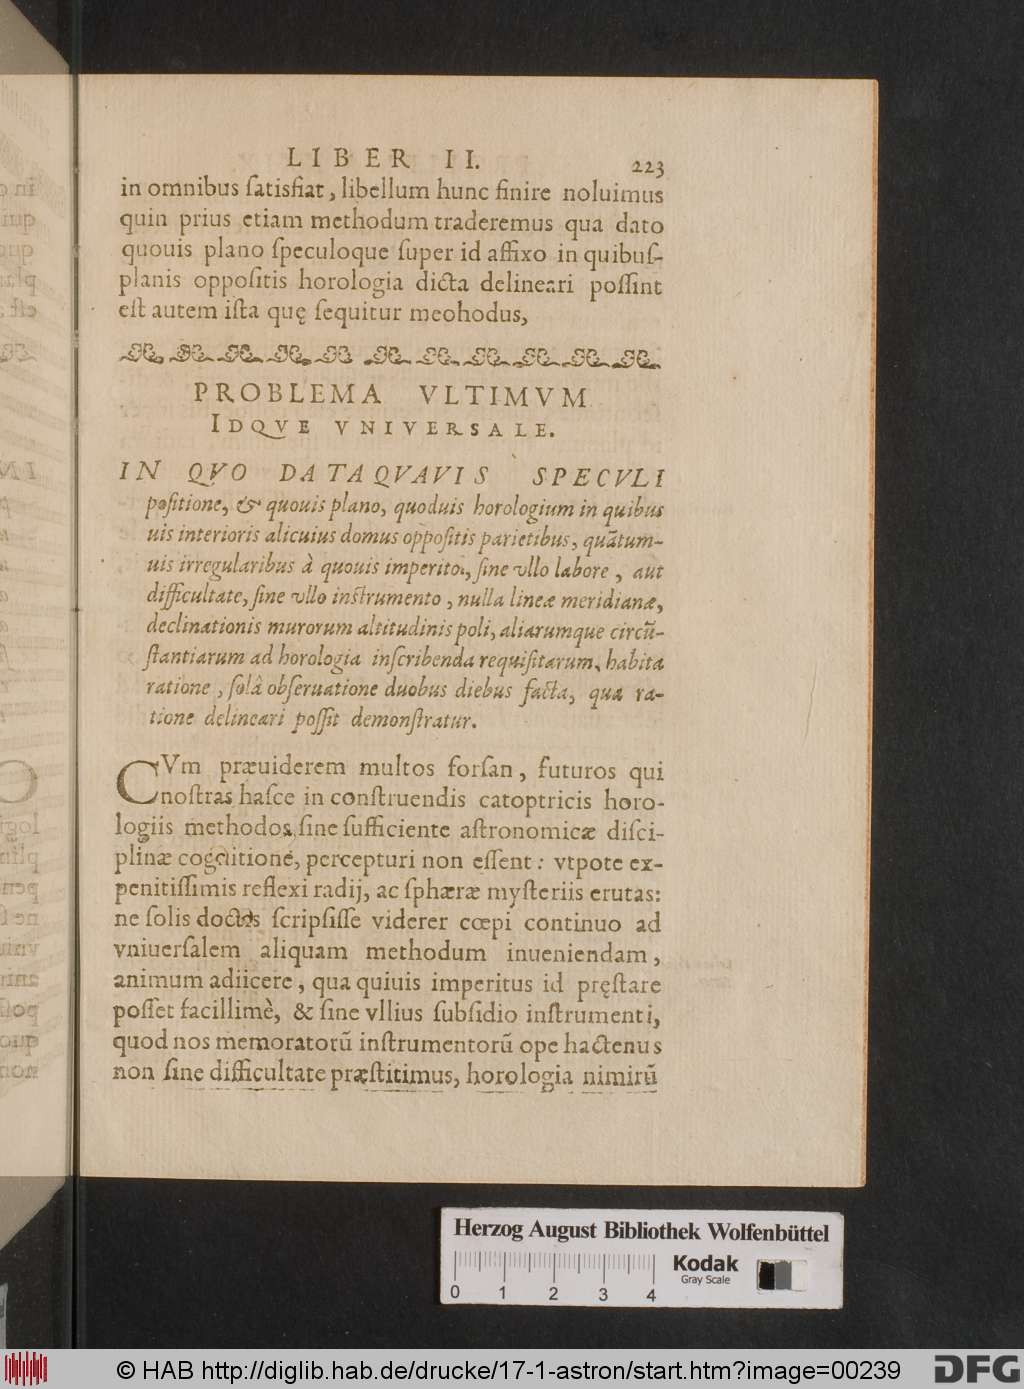 LIBER II. 223
in omnibus ſatisfiat, libellum hunc finire noluimus
quin prius etiam methodum traderemus qua dato
quouis plano ſpeculoque ſuper id affixo in quibuſ-
planis oppoſitis horologia dicta delineari poſſint
eſt autem iſta quę ſequitur meohodus,
PROBLEMA VLTIMVM
IDQVE VNIVERSALE.
IN QVO DATAQVAVIS SPECVLI
poſitione, & quouis plano, quoduis horologium in quibus
uis interioris alicuius domus oppoſitis parietibus, quãtum-
uis irregularibus à quouis imperito, ſine vllo labore, aut
difficultate, ſine vllo inſtrumento, nulla lineæ meridianæ,
declinationis murorum altitudinis poli, aliarumque circũ-
ſtantiarum ad horologia inſcribenda requiſitarum, habita
ratione, ſolâ obſeruatione duobus diebus facta, qua ra-
tione delineari poſſit demonſtratur.
CVm præuiderem multos forſan, futuros qui
noſtras haſce in conſtruendis catoptricis horo-
logiis methodos, ſine ſufficiente aſtronomicæ diſci-
plinæ cognitione, percepturi non eſſent: vtpote ex-
penitiſſimis reflexi radij, ac ſphæræ myſteriis erutas:
ne ſolis doctos ſcripſiſſe viderer cœpi continuo ad
vniuerſalem aliquam methodum inueniendam,
animum adiicere, qua quiuis imperitus id pręſtare
poſſet facillimè, & ſine vllius ſubſidio inſtrumenti,
quod nos memoratorũ inſtrumentorũ ope hactenus
non ſine difficultate præſtitimus, horologia nimirũ
Herzog August Bibliothek Wolfenbüttel
Kodak
Gray Scale
0 1 2 3 4
© HAB http://diglib.hab.de/drucke/17-1-astron/start.htm?image=00239
DFG